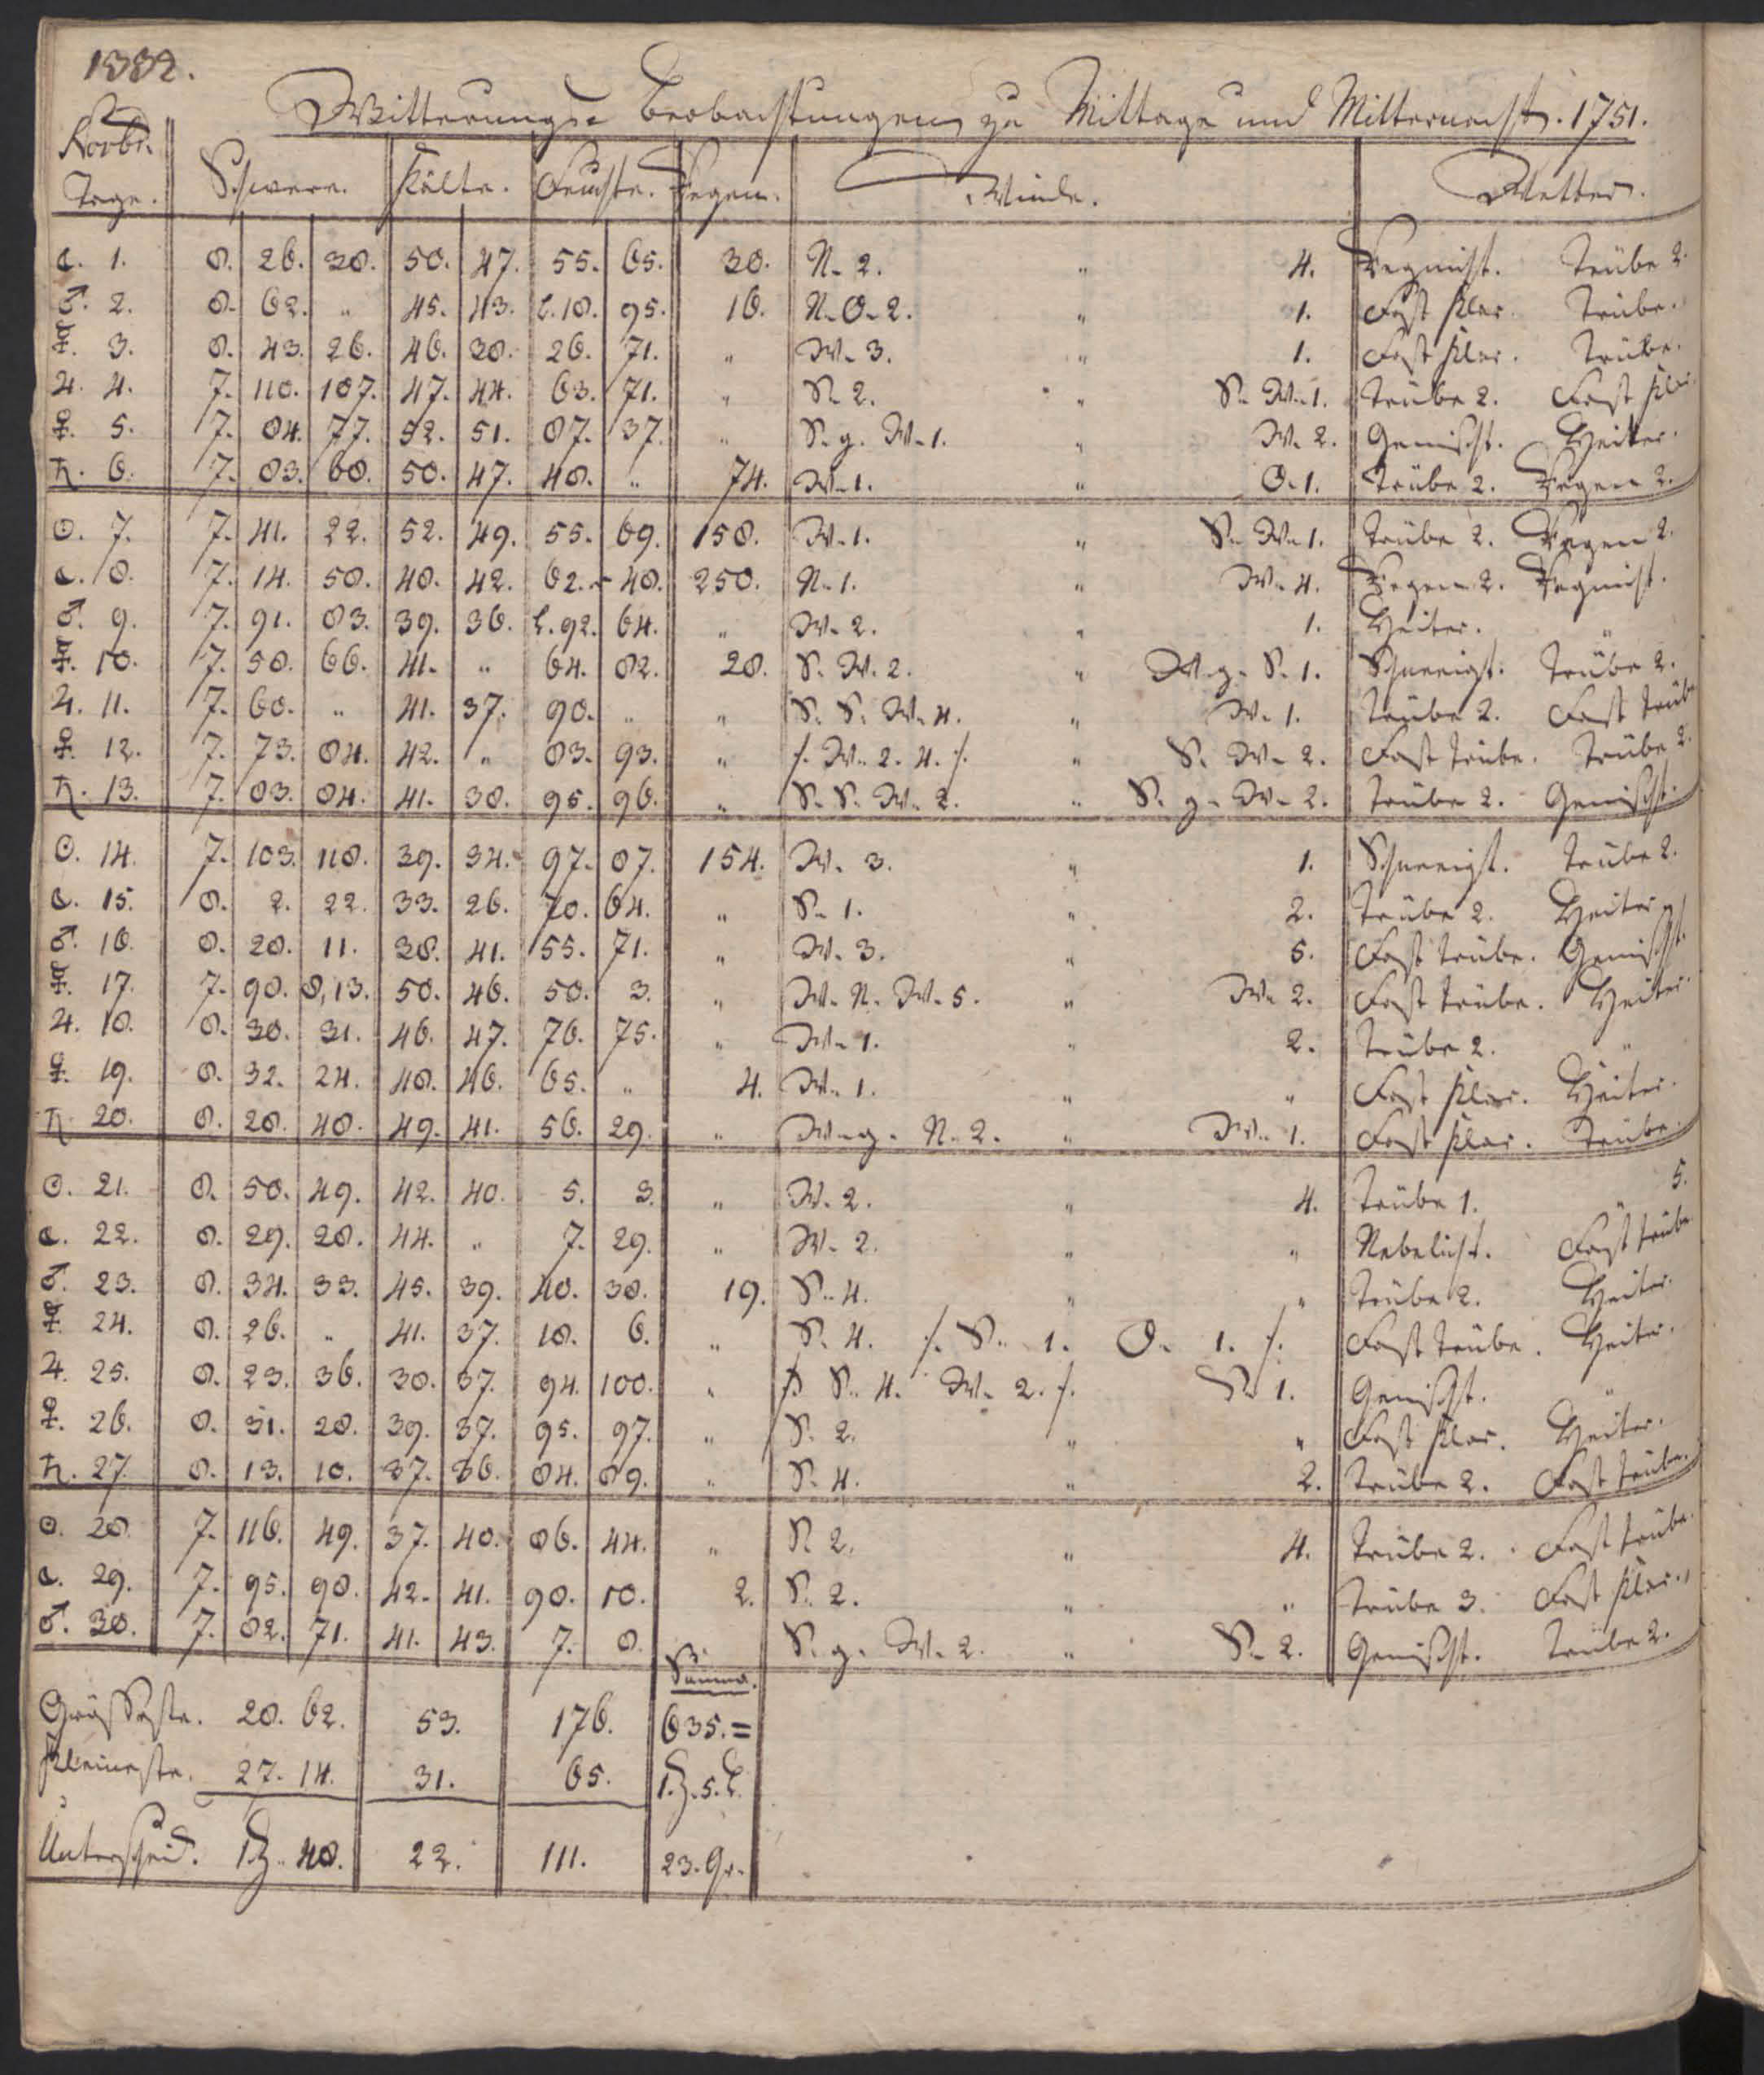 1382.
Witterungs- Beobachtungen zu Mittage und Mitternacht. 1751.
Novbr. Tage. Schwere. Kälte. Feuchte. Regen. Winde. Wetter.
☾. 1. 8. 26. 38. 50. 47. 55. 65. 38. N. 2. „ 4. Regnicht. Trübe 2.
♂. 2. 8. 62. „ 45. 43. L. 18. 95. 16. N. O. 2. „ 1. Fast klar. Trübe.
☿. 3. 8. 43. 26. 46. 38. 26. 71. „ W. 3. „ 1. Fast klar. Trübe.
♃. 4. 7. 110. 107. 47. 44. 63. 71. „ S. 2. „ S. W. 1. Trübe 2. Fast klar.
♀. 5. 7. 84. 77. 52. 51. 87. 37. „ S. g. W. 1. „ W. 2. Gemischt. Heiter.
♄. 6. 7. 83. 60. 50. 47. 48. „ 74. W. 1. „ O. 1. Trübe 2. Regen 2.
☉. 7. 7. 41. 22. 52. 49. 55. 69. 158. W. 1. „ S. W. 1. Trübe 2. Regen 2.
☾. 8. 7. 14. 50. 48. 42. 62. 48. 250. N. 1. „ W. 4. Regen 2. Regnicht.
♂. 9. 7. 91. 83. 39. 36. L. 92. 64. „ W. 2. „ 1. Heiter. „
☿. 10. 7. 58. 66. 41. „ 64. 82. 28. S. W. 2. „ W. g. S. 1. Schneeigt. Trübe 2.
♃. 11. 7. 60. „ 41. 37. 90. „ „ S. S. W. 4. „ W. 1. Trübe 2. Fast trübe
♀. 12. 7. 73. 84. 42. „ 83. 93. „ /. W. 2. 4. /. „ S. W. 2. Fast trübe. Trübe 2.
♄. 13. 7. 83. 84. 41. 38. 95. 96. „ S. S. W. 2. „ S. g. W. 2. Trübe 2. Gemischt.
☉. 14. 7. 103. 118. 39. 34. 97. 87. 154. W. 3. „ 1. Schneeigt. Trübe 2.
☾. 15. 8. 2. 22. 33. 26. 70. 64. „ S. 1. „ 2. Trübe 2. Heiter.
♂. 16. 8. 20. 11. 38. 41. 55. 71. „ W. 3. „ 5. Fast trübe. Gemischt.
☿. 17. 7. 98. 8,13. 50. 46. 50. 3. „ W. N. W. 5. „ W. 2. Fast trübe. Heiter.
♃. 18. 8. 30. 31. 46. 47. 76. 75. „ W. 1. „ 2. Trübe 2. „
♀. 19. 8. 32. 24. 48. 46. 65. „ 4. W. 1. „ „ Fast klar. Heiter.
♄. 20. 8. 28. 40. 49. 41. 56. 29. „ W. g. N. 2. „ W. 1. Fast klar. Trübe.
☉. 21. 8. 50. 49. 42. 40. 5. 3. „ W. 2. „ 4. Trübe 1. 5.
☾. 22. 8. 29. 28. 44. „ 7. 29. „ W. 2. „ „ Nebelicht. Fast trübe
♂. 23. 8. 34. 33. 45. 39. 40. 38. 19. S. 4. „ „ Trübe 2. Heiter.
☿. 24. 8. 26. „ 41. 37. 18. 6. „ S. 4. /. S. 1. O. 1. /. Fast trübe. Heiter.
♃. 25. 8. 23. 36. 38. 37. 94. 100. „ /. S. 4. W. 2. /. S. 1. Gemischt. „
♀. 26. 8. 31. 28. 39. 37. 95. 97. „ S. 2. „ „ Fast klar. Heiter.
♄. 27. 8. 13. 10. 37. 36. 84. 89. „ S. 4. „ 2. Trübe 2. Fast trübe.
☉. 28. 7. 116. 49. 37. 40. 86. 44. „ S. 2. „ 4. Trübe 2. Fast trübe.
☾. 29. 7. 95. 90. 42. 41. 90. 10. 2. S. 2. „ „ Trübe 3. Fast klar.
♂. 30. 7. 82. 71. 41. 43. 7. 8. S. g. W. 2. „ S. 2. Gemischt. Trübe 2.
Summa.
Grösseste. 28. 62. 53. 176. 635.=
Kleineste. 27. 14. 31. 65. 1.Z. 5. L.
Unterscheid. 1.Z. 48. 22. 111. 23. gr.